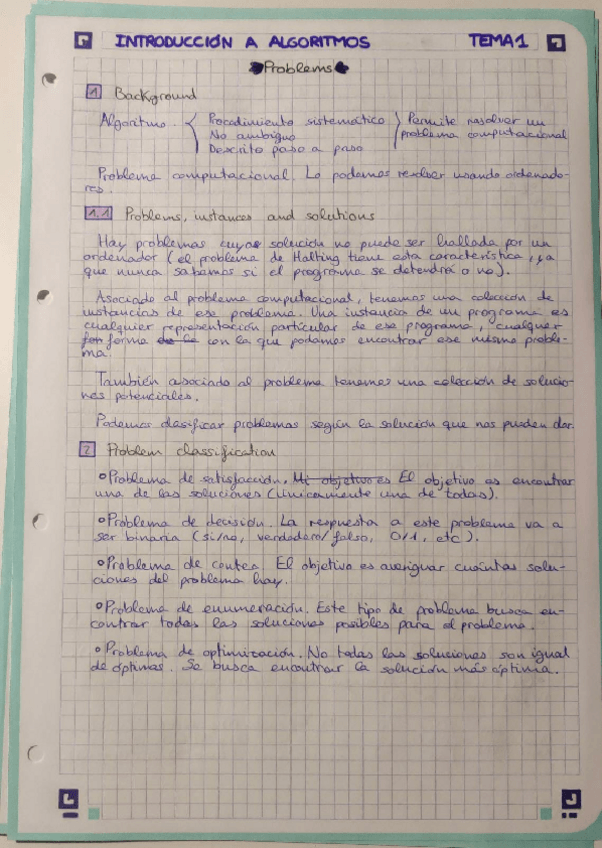 INTRODUCCIÓN A ALGORITMOS TEMA 1
Problems
1 Background
Algoritmo. Procedimiento sistemático Permite resolver un
No ambiguo problema computacional
Descrito paso a paso
Problema computacional. Lo podemos resolver usando ordenado-
res.
1.1 Problems, instances and solutions
Hay problemas cuya solución no puede ser hallada por un
ordenador (el problema de Halting tiene esta característica, ya
que nunca sabemos si el programa se detendrá o no).
Asociado al problema computacional, tenemos una colección de
instancias de ese problema. Una instancia de un programa es
cualquier representación particular de ese programa, cualquier
forma con la que podamos encontrar ese mismo proble-
ma.
También asociado al problema tenemos una colección de solucio-
nes potenciales.
Podemos clasificar problemas según la solución que nos pueden dar.
2 Problem classification
Problema de satisfacción. Mi objetivo es El objetivo es encontrar
una de las soluciones (únicamente una de todas).
Problema de decisión. La respuesta a este problema va a
ser binaria (si/no, verdadero/falso, 0/1, etc).
Problema de conteo. El objetivo es averiguar cuántas solu-
ciones del problema hay.
Problema de enumeración. Este tipo de problema busca en-
contrar todas las soluciones posibles para el problema.
Problema de optimización. No todas las soluciones son igual
de óptimas. Se busca encontrar la solución más óptima.